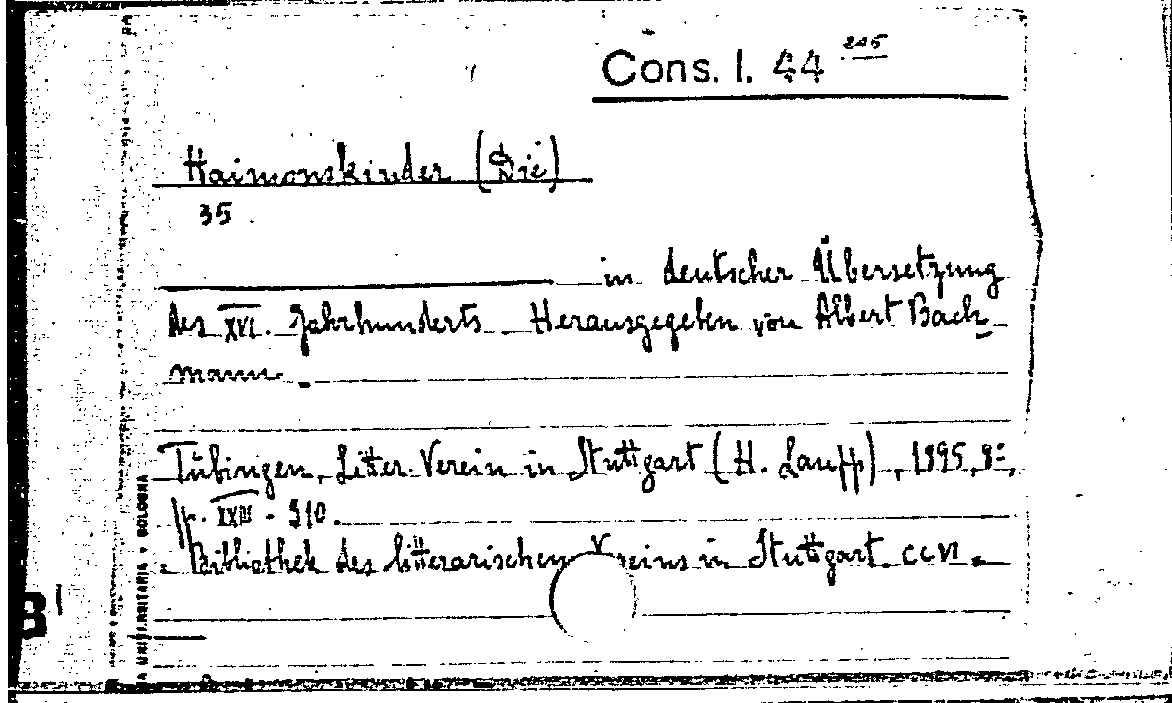 Cons. I. 44 205
Haimonskinder (Die)
35
in deutscher Übersetzung
des XVI. Jahrhunderts - Herausgegeben von Albert Bach
mann. -
Tübingen, Litter. Verein in Stuttgart (H. Laupp), 1895, 8º,
pp. XXIII - 310.
Bibliothek des litterarischen Vereins in Stuttgart. CCVI -
UNIVERSITARIA • BOLOGNA
B